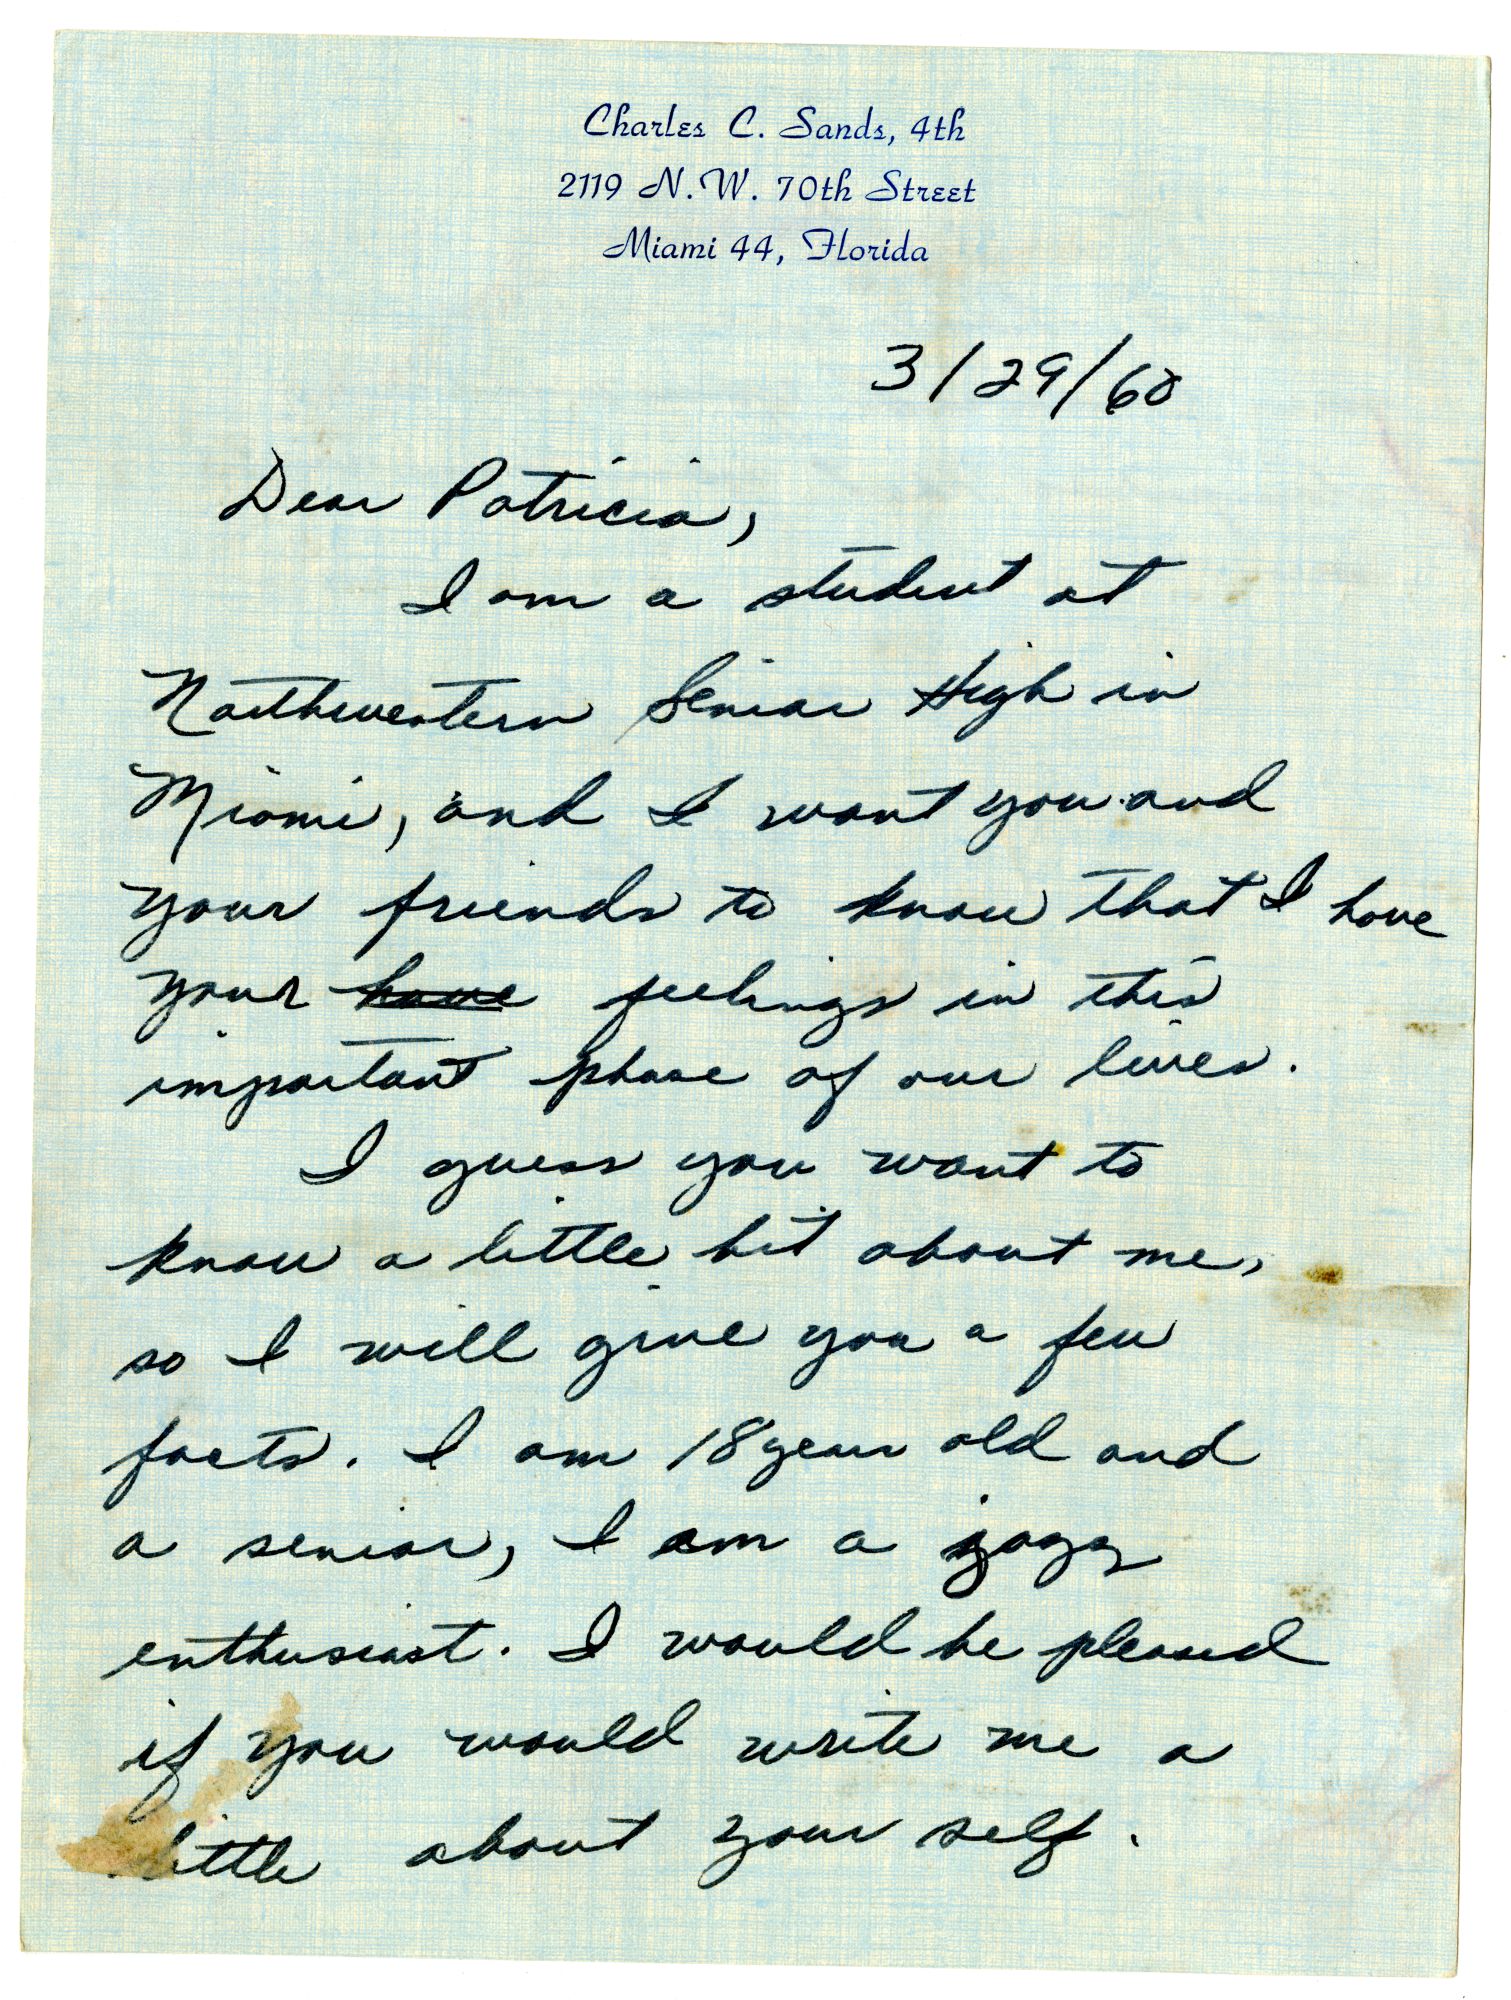 Charles C. Sands, 4th
2119 N.W. 70th Street
Miami 44, Florida
3/29/60
Dear Patricia,
I am a student at
Northwestern Senior High in
Miami, and I want you and
your friends to know that I have
your have feelings in this
important phase of our lives.
I guess you want to
know a little bit about me,
so I will give you a few
facts. I am 18 years old and
a senior, I am a yoga
enthusiast. I would be pleased
if you would write me a
little about your self.